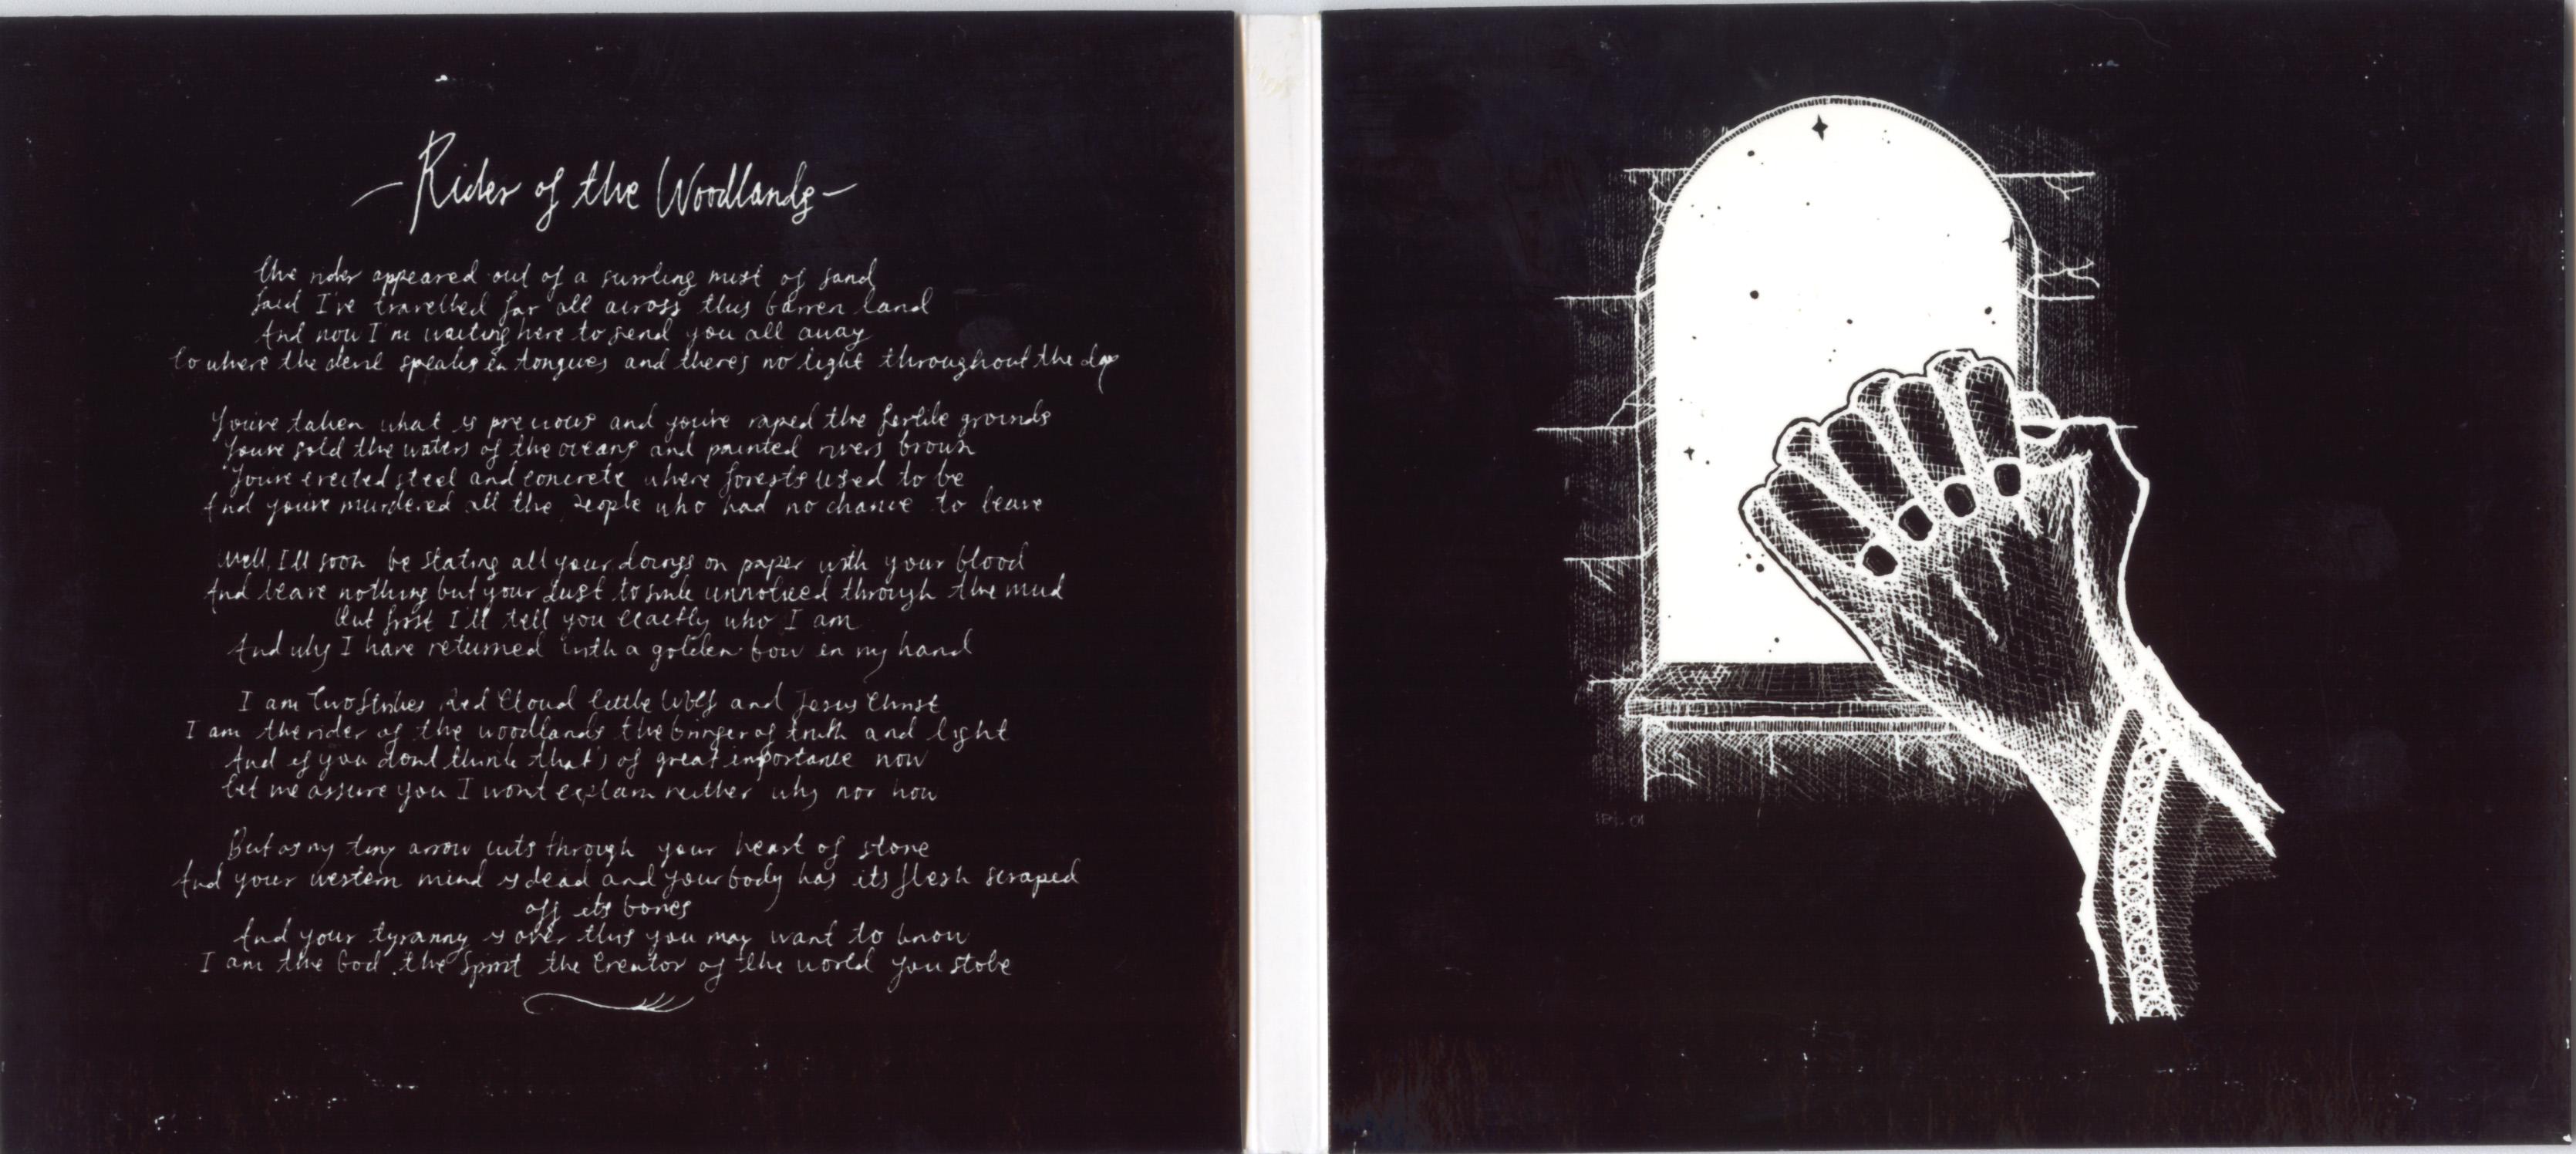 - Rider of the Woodlands -
The rider appeared out of a swirling mist of sand
Said I've travelled far all across this barren land
And now I'm waiting here to send you all away
To where the devil speaks in tongues and there's no light throughout the day
You've taken what is precious and you've raped the fertile grounds
You've sold the waters of the oceans and painted rivers brown
You've erected steel and concrete where forests used to be
And you've murdered all the people who had no chance to leave
Well, I'll soon be stating all your doings on paper with your blood
And leave nothing but your dust to sink unnoticed through the mud
But first I'll tell you exactly who I am
And why I have returned with a golden bow in my hand
I am Two Strikes Red Cloud Little Wolf and Jesus Christ
I am the rider of the woodlands the bringer of truth and light
And if you don't think that's of great importance now
Let me assure you I won't explain neither why nor how
But as my tiny arrow cuts through your heart of stone
And your western mind is dead and your body has its flesh scraped
off its bones
And your tyranny is over this you may want to know
I am the God the Spirit the Creator of the world you stole